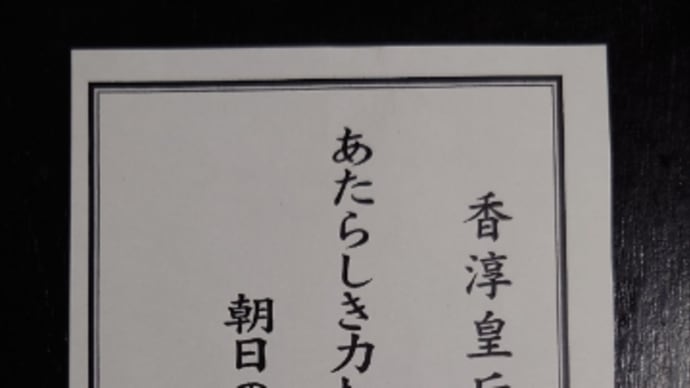 香淳皇后
あたらしき力
朝日の